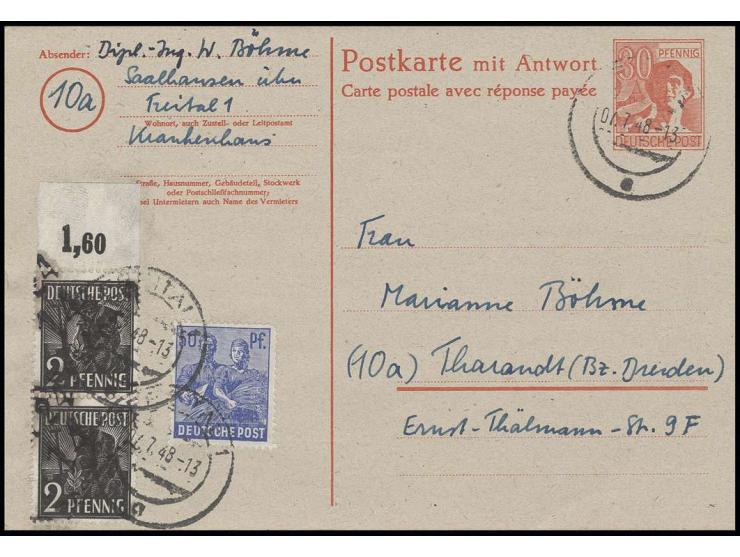 Absender: Dipl.-Ing. W. Böhme
10a
Saalhausen über
Freital 1
Wohnort, auch Zustell- oder Leitpostamt
Krankenhaus
Straße, Hausnummer, Gebäudeteil, Stockwerk
oder Postschließfachnummer;
bei Untermietern auch Name des Vermieters
Postkarte mit Antwort
Carte postale avec réponse payée
30 PFENNIG
DEUTSCHE POST
7.48-13
a
Frau
Marianne Böhme
(10a) Tharandt (Bz. Dresden)
Ernst-Thälmann-Str. 9F
1,60
DEUTSCHE POST
2 PFENNIG
48-13
50 Pf.
DEUTSCHE POST
DEUTSCHE POST
2 PFENNIG
7.48-13
a